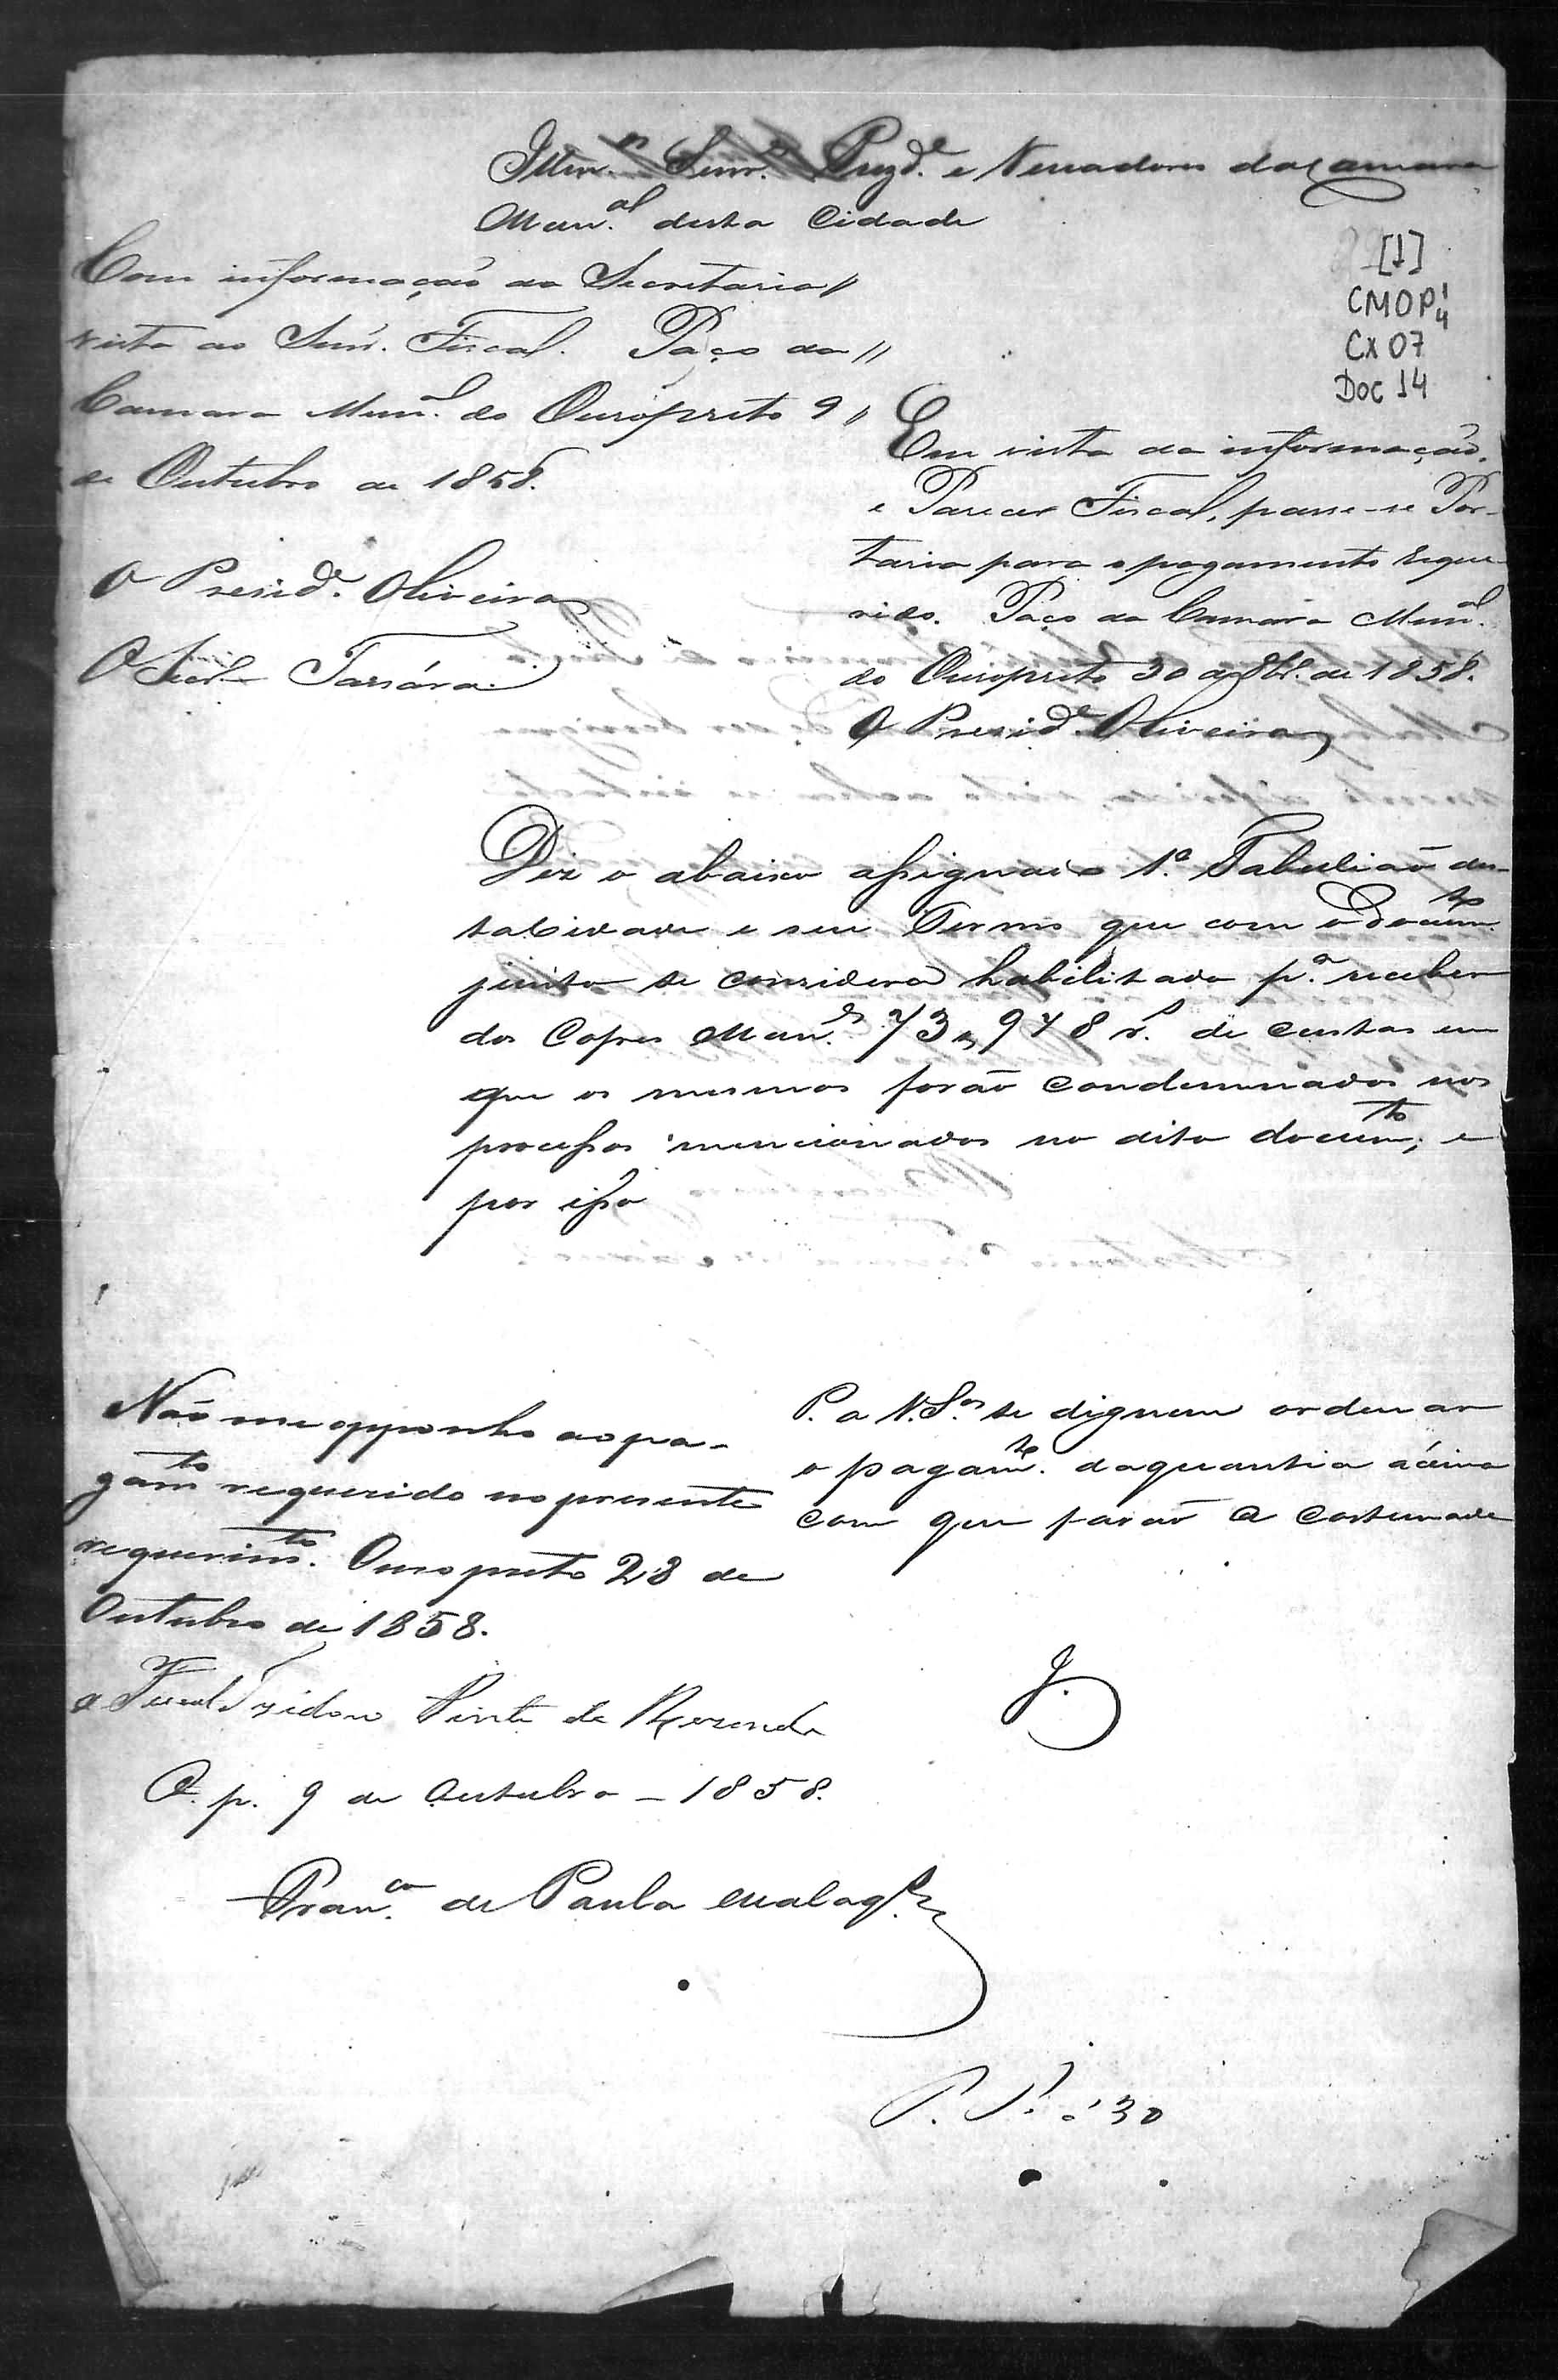 Illm.os Senr.es Prezd.e e Vereadores da Camara
Mun.al desta Cidade
[1]
CMOP
Cx 07
Doc 14
Com informação da Secretaria //
vista ao Senr. Fiscal. Paço da //
Camara Mun.l do Ouropreto 9 //
de Outubro de 1858.
O Presid.e Oliveira
O Secr.
Em vista da informação,
e Parecer Fiscal, passe-se Por-
taria para o pagamento reque-
rido. Paço da Camara Mun.al
do Ouropreto 30 de 8br.o de 1858.
O Presid.e Oliveira
Diz o abaixo assignado 1.o Tabelião des-
ta Cidade e seu Termo que com o docum.to
junto se considera habilitado p.a receber
dos Cofres Mun.es 73,,948 r.s de custas em
que os mesmos forão condemnados nos
processos mencionados no dito docum.to; e
por isso
P. a V.S.as se dignem ordenar
o pagam.to daquantia aácima
com que farão a costumada
J.
Não me opponho ao pa-
gam.to requerido no presente
requerim.to. Ouropreto 23 de
Outubro de 1858.
O Fiscal Izidoro Pinto de Rezende
O. p. 9 de Outubro – 1858.
Fran.co de Paula Malaq.s